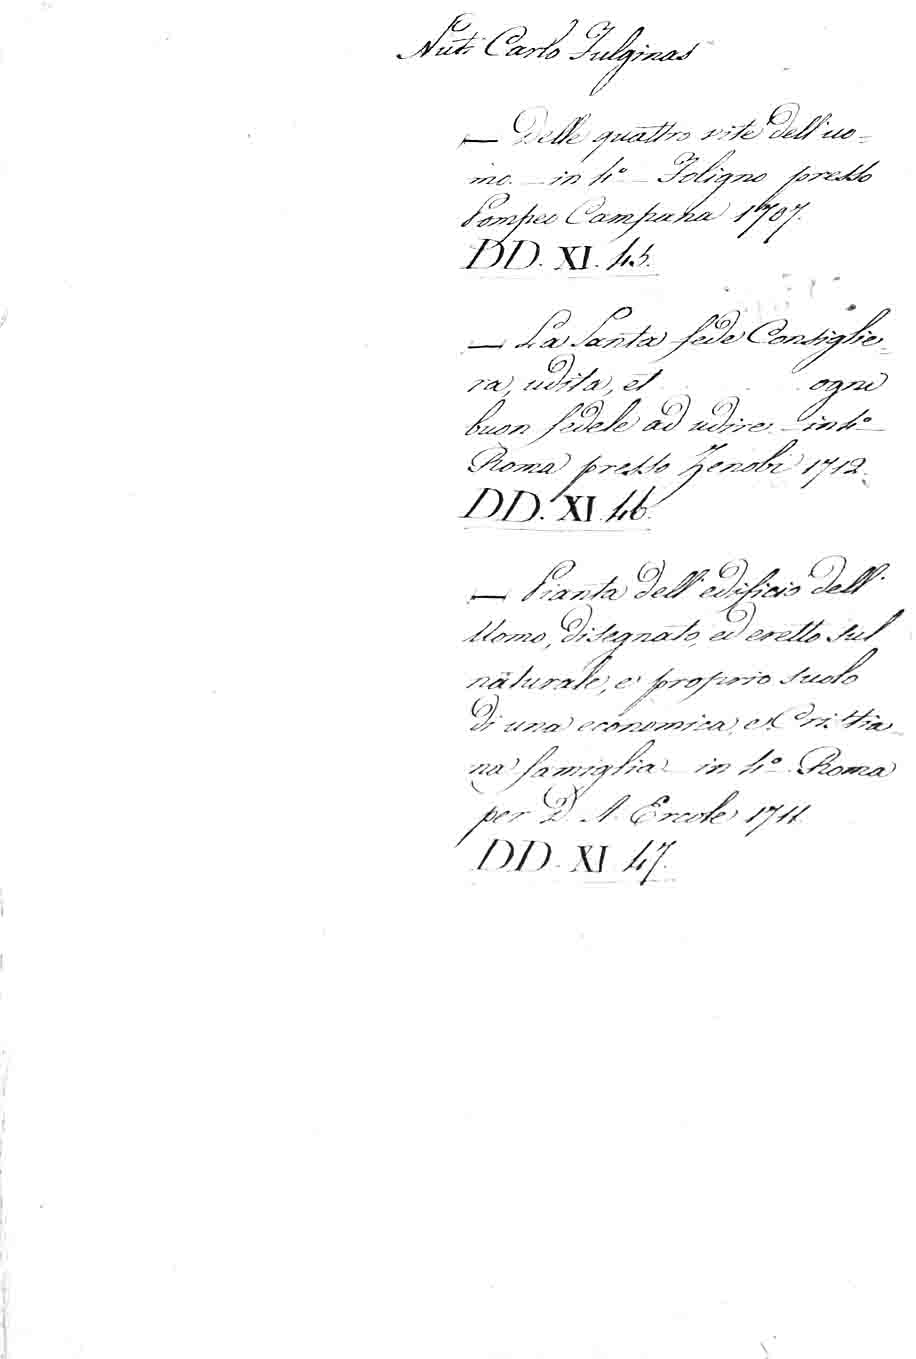 Nuti Carlo Fulginas
— Delle quattro vite dell'uo=
mo. — in 4° — Foligno presso
Pompeo Campana 1707.
DD. XI. 45.
— La Santa fede Consiglie=
ra, udita, et ogni
buon fedele ad udire — in 4° —
Roma presso Zenobi 1712.
DD. XI. 46.
— Pianta dell'edificio dell'
Uomo, disegnato, ed eretto sul
naturale, e proprio suolo
di una economica, e Cristia=
na famiglia — in 4° — Roma
per D. A. Ercole 1711.
DD. XI 47.